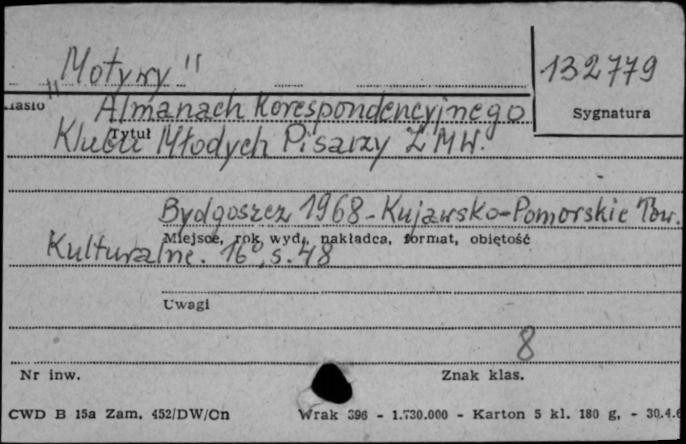 „Motywy” 132779
Hasło Almanach Korespondencyjnego Sygnatura
Tytuł Klubu Młodych Pisarzy ZMW.
Bydgoszcz 1968 - Kujawsko-Pomorskie Tow.
Miejsce, rok wyd., nakładca, format, objętość
Kulturalne. 16°, s. 48
Uwagi
8
Nr inw. Znak klas.
CWD B 15a Zam. 452/DW/Cn Wrak 396 - 1.730.000 - Karton 5 kl. 180 g, - 30.4.6